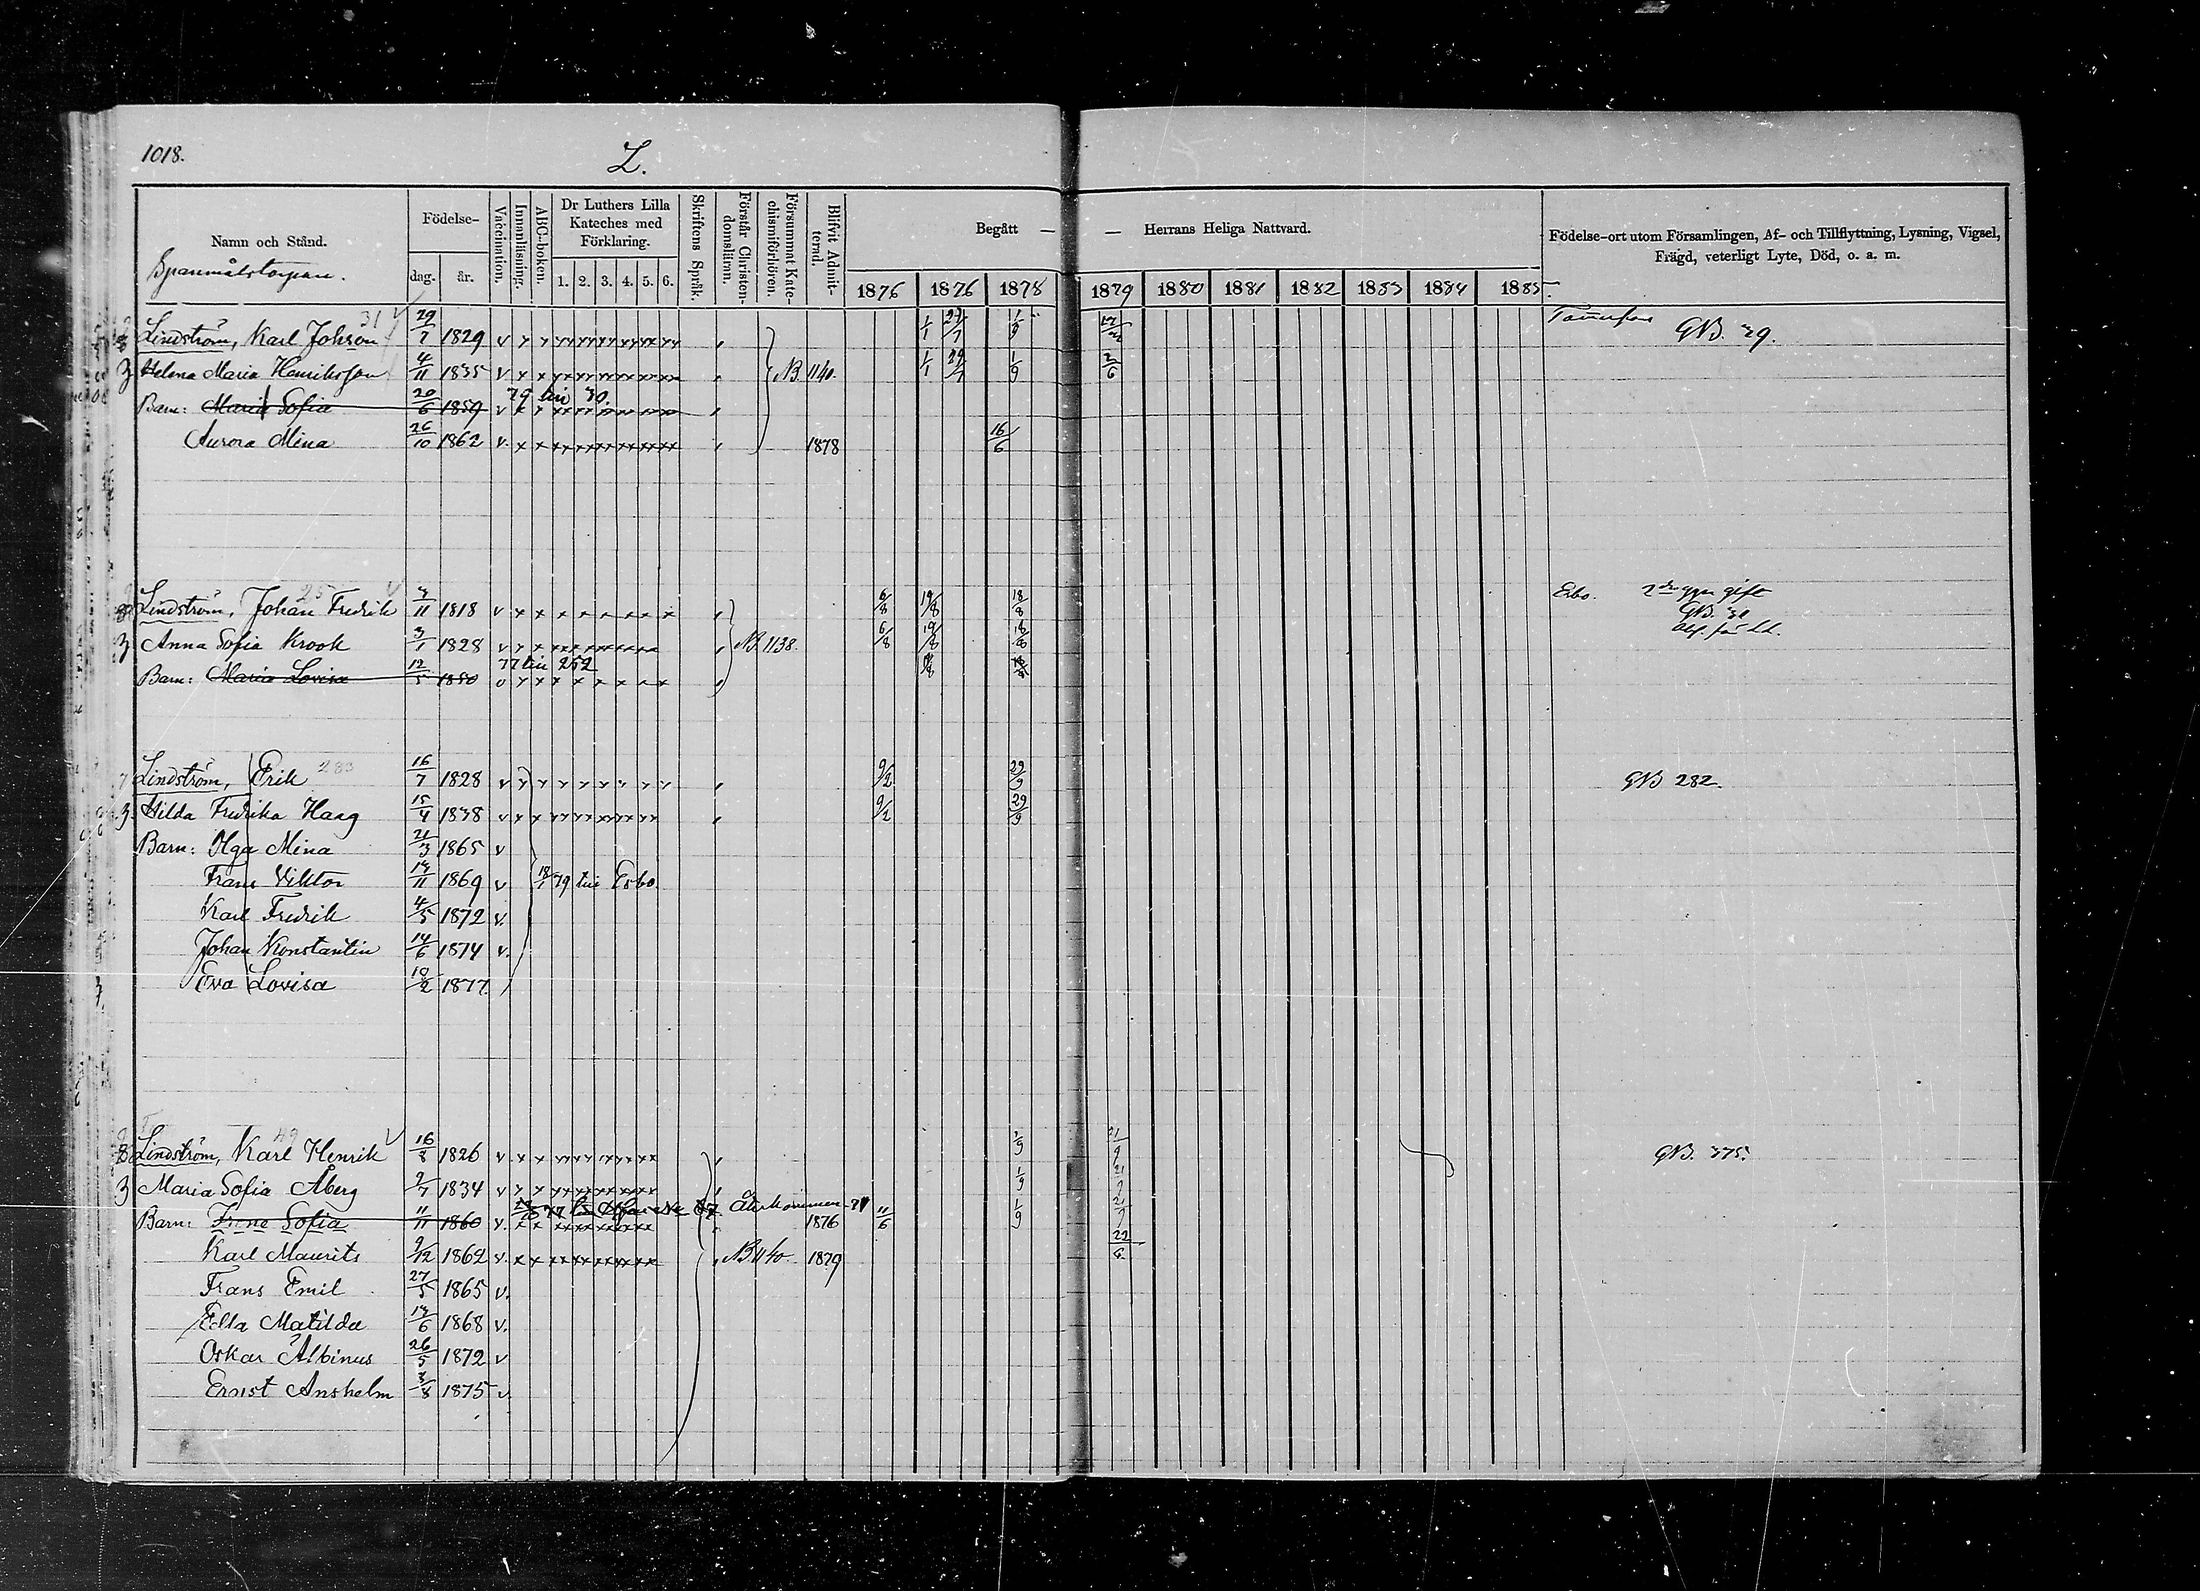 1018.
L.
Namn och Stånd.
Spanmålstorpare.
Födelse-
dag. år.
Vaccination.
Innanläsning.
ABC-boken.
Dr Luthers Lilla Kateches med Förklaring.
1. 2. 3. 4. 5. 6.
Skriftens Språk.
Förstår Christendomslärän.
Försummat Katechismiförhören.
Blifvit Admitterad.
Begått — — Herrans Heliga Nattvard.
1876 1876 1878 1879 1880 1881 1882 1883 1884 1885.
Födelse-ort utom Församlingen, Af- och Tillflyttning, Lysning, Vigsel,
Frägd, veterligt Lyte, Död, o. a. m.
31
Lindström, Karl Johson 29/7 1829 v 1/1 27/7 1/9 GB. 39.
3 Helena Maria Henriksson 4/11 1835 v NB. 1140. 1/1 29/7 1/9 2/6
79 till 30.
Barn: Maria Sofia 20/6 1859 v
Aurora Mina 26/10 1862 v. 1878 16/6
25
Lindström, Johan Fredrik 3/11 1818 v 6/8 19/8 18/8 Esbo. 2dra ggn gift
GB. 31
3 Anna Sofia Krook 3/1 1828 v NB. 1138. 6/8 19/8 18/8
77 till 252
Barn: Maria Lovisa 12/5 1850 v
283
Lindström, Erik 16/7 1828 v 9/2 29/9 GB 282.
3 Hilda Fredrika Haag 15/4 1838 v 9/2 29/9
Barn: Olga Mina 21/3 1865 v
Frans Viktor 13/11 1869 v 18/1 79 till Esbo.
Karl Fredrik 4/5 1872 v.
Johan Konstantin 14/6 1874 v.
Eva Lovisa 10/2 1877.
49
8 Lindström, Karl Henrik 16/8 1826 v 1/9 21/9 GB. 375.
3 Maria Sofia Åberg 9/7 1834 v 1/9
Återkommen
Barn: Irene Sofia 11/11 1860 v. 1876 11/6 1/9
Karl Maurits 9/12 1862 v. NB 1140. 1879 22/6
Frans Emil 27/5 1865 v.
Edla Matilda 13/6 1868 v.
Oskar Albinus 26/5 1872 v
Ernst Anshelm 3/8 1875 v.